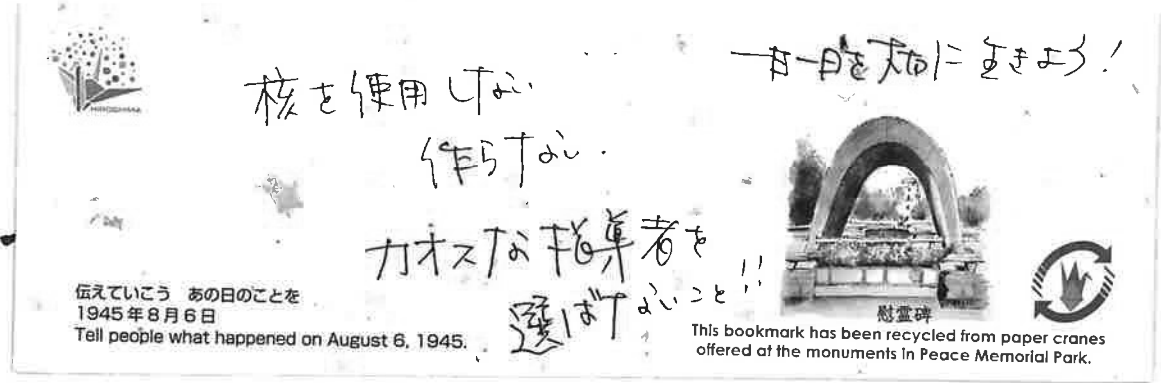 HIROSHIMA
核を使用しない
作らない.
カオスな指導者を
選ばないこと!!
一日一日を大切に生きよう!
伝えていこう あの日のことを
1945年8月6日
Tell people what happened on August 6, 1945.
慰霊碑
This bookmark has been recycled from paper cranes
offered at the monuments in Peace Memorial Park.